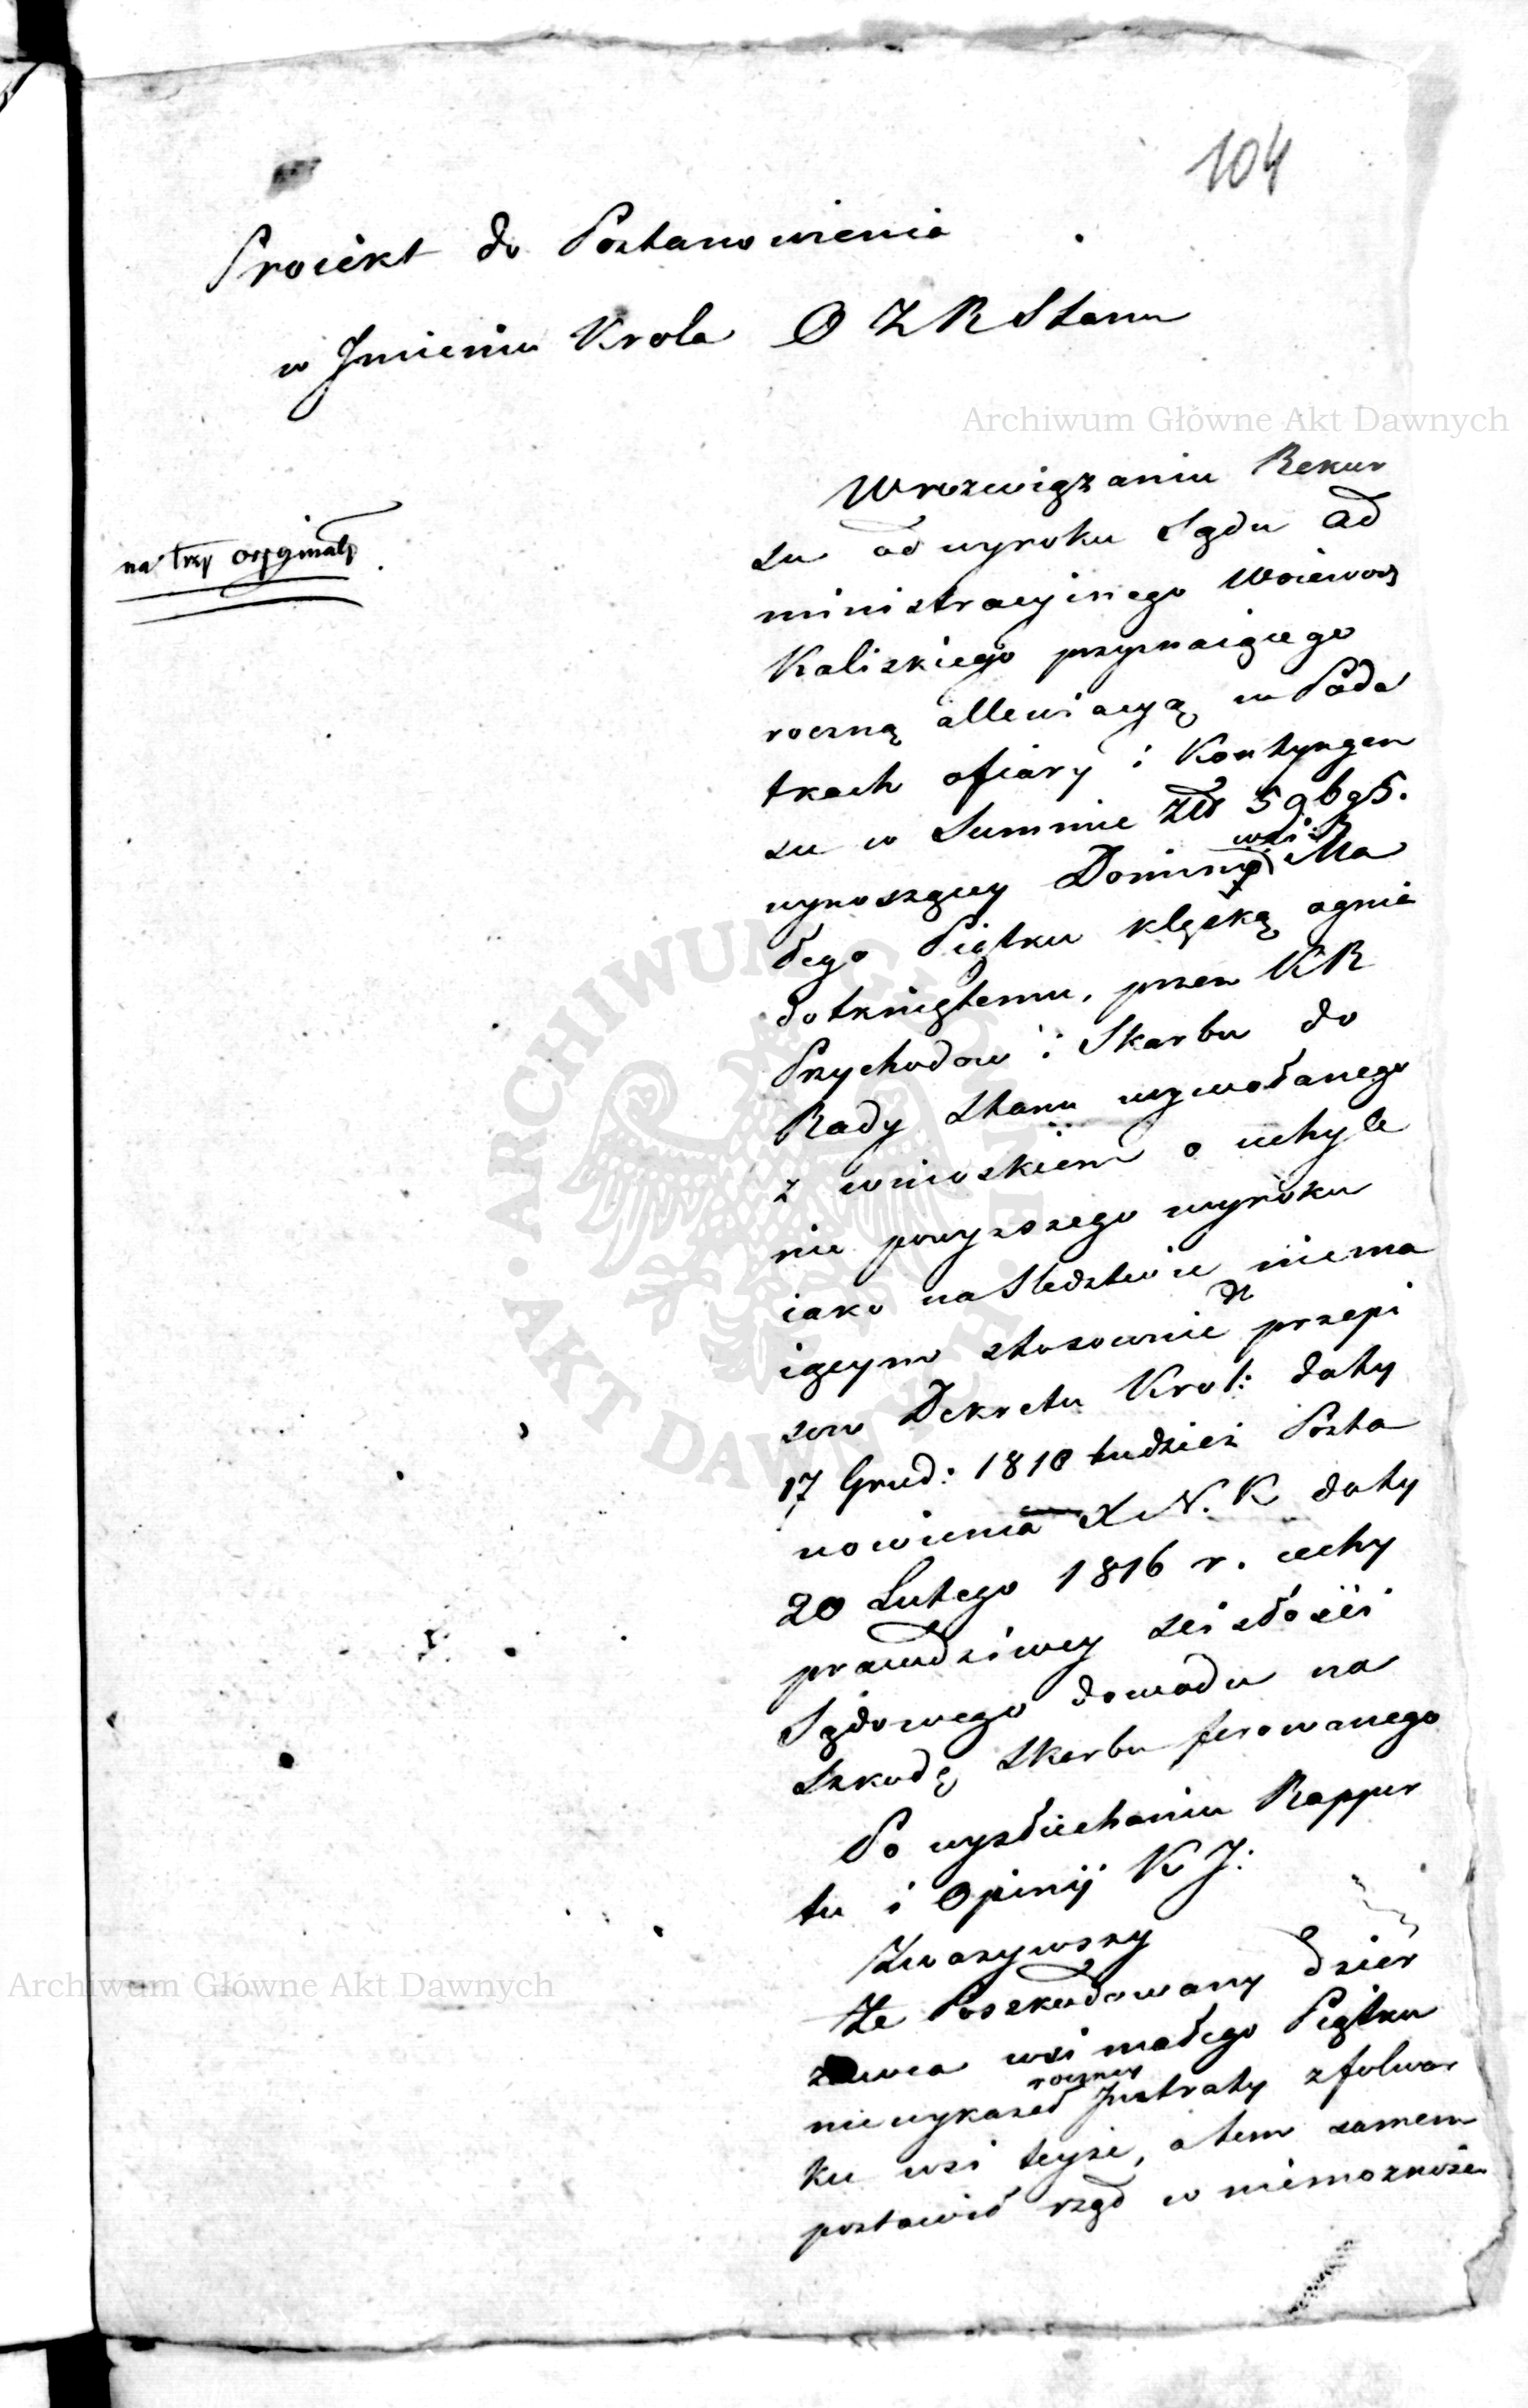 104
Proiekt do Postanowienia
w Jmieniu Krola O Z R Stanu
Archiwum Główne Akt Dawnych
na trzy oryginały
W rozwiązaniu Rekur
su od wyroku Sądu Ad
ministracyinego Woiewodz
Kaliskiego przyznaiącego
roczną allewiacyą w Poda
tkach ofiary i Kontyngen
su w Summie Złł 596 g 5.
wynoszącey Dominio wsi Ma
łego Piątku klęską ognia
dotkniętemu, przez KR
Przychodow i Skarbu do
Rady Stanu wywołanego
z wnioskiem o uchyle
nie powyższego wyroku
iako na Sledztwie niema
iącym stosownie do przepi
sow Dekretu Krol: daty
17 Grud: 1810 tudzież Posta
nowienia X N. K daty
20 Lutego 1816 r. cechy
prawdziwey scisłości
Sądowego dowodu na
szkodę Skarbu ferowanego
Po wysłuchaniu Rappor
tu i Opinij K J:
Zwazywszy
Ze Poszkodowany dzier
zawca wsi małego Piątku
nie wykazał roczney Jntraty z folwar
ku wsi teyże, a tem samem
postawił rząd w niemożnosci
Archiwum Główne Akt Dawnych
ARCHIWUM GŁÓWNE AKT DAWNYCH